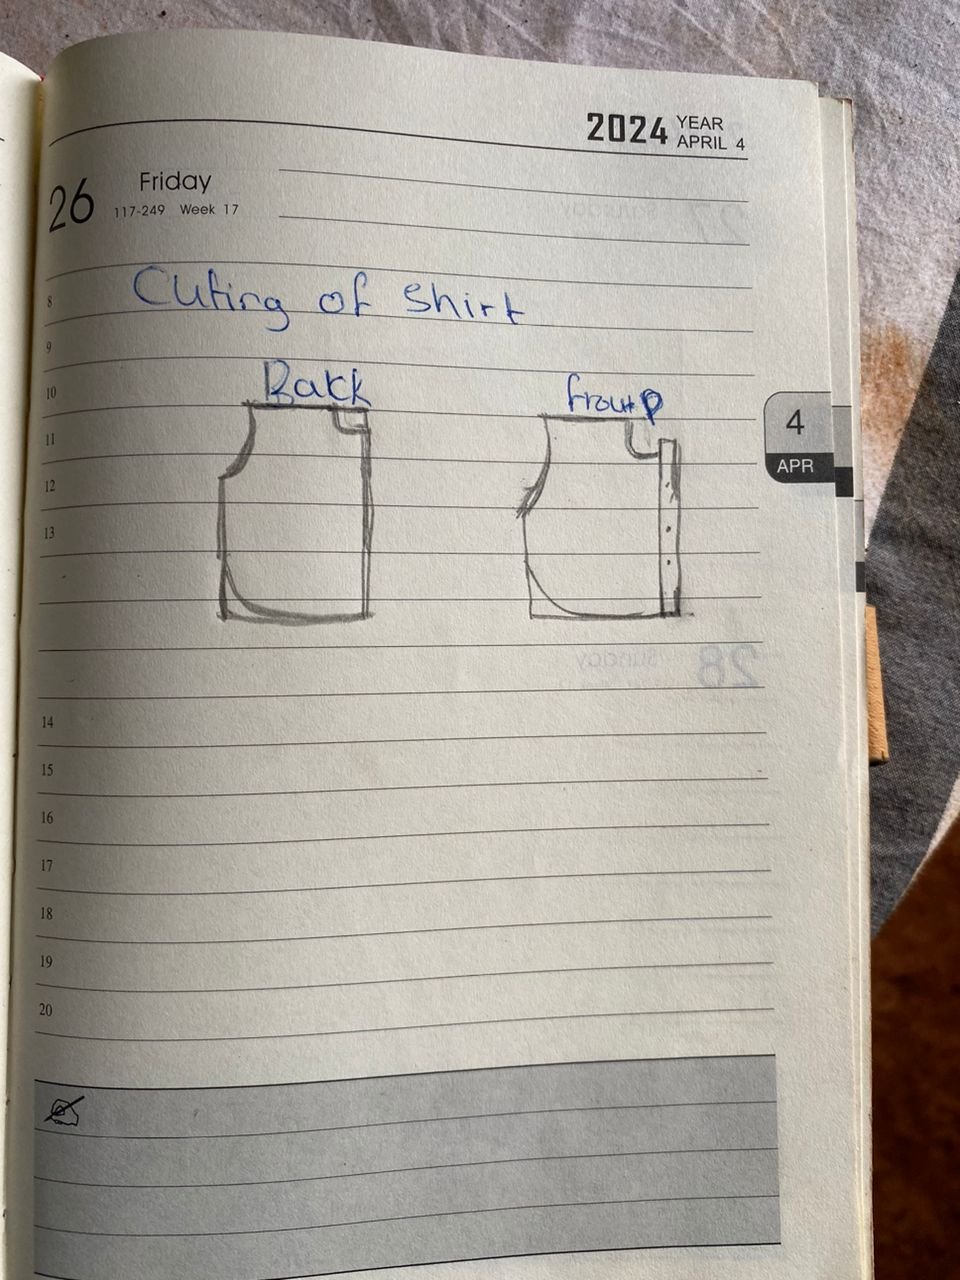 2024 YEAR
APRIL 4
26 Friday
117-249 Week 17
8
Cuting of shirt
9
10
Back
11
4
APR
12
13
14
15
16
17
18
19
20
28 Sunday